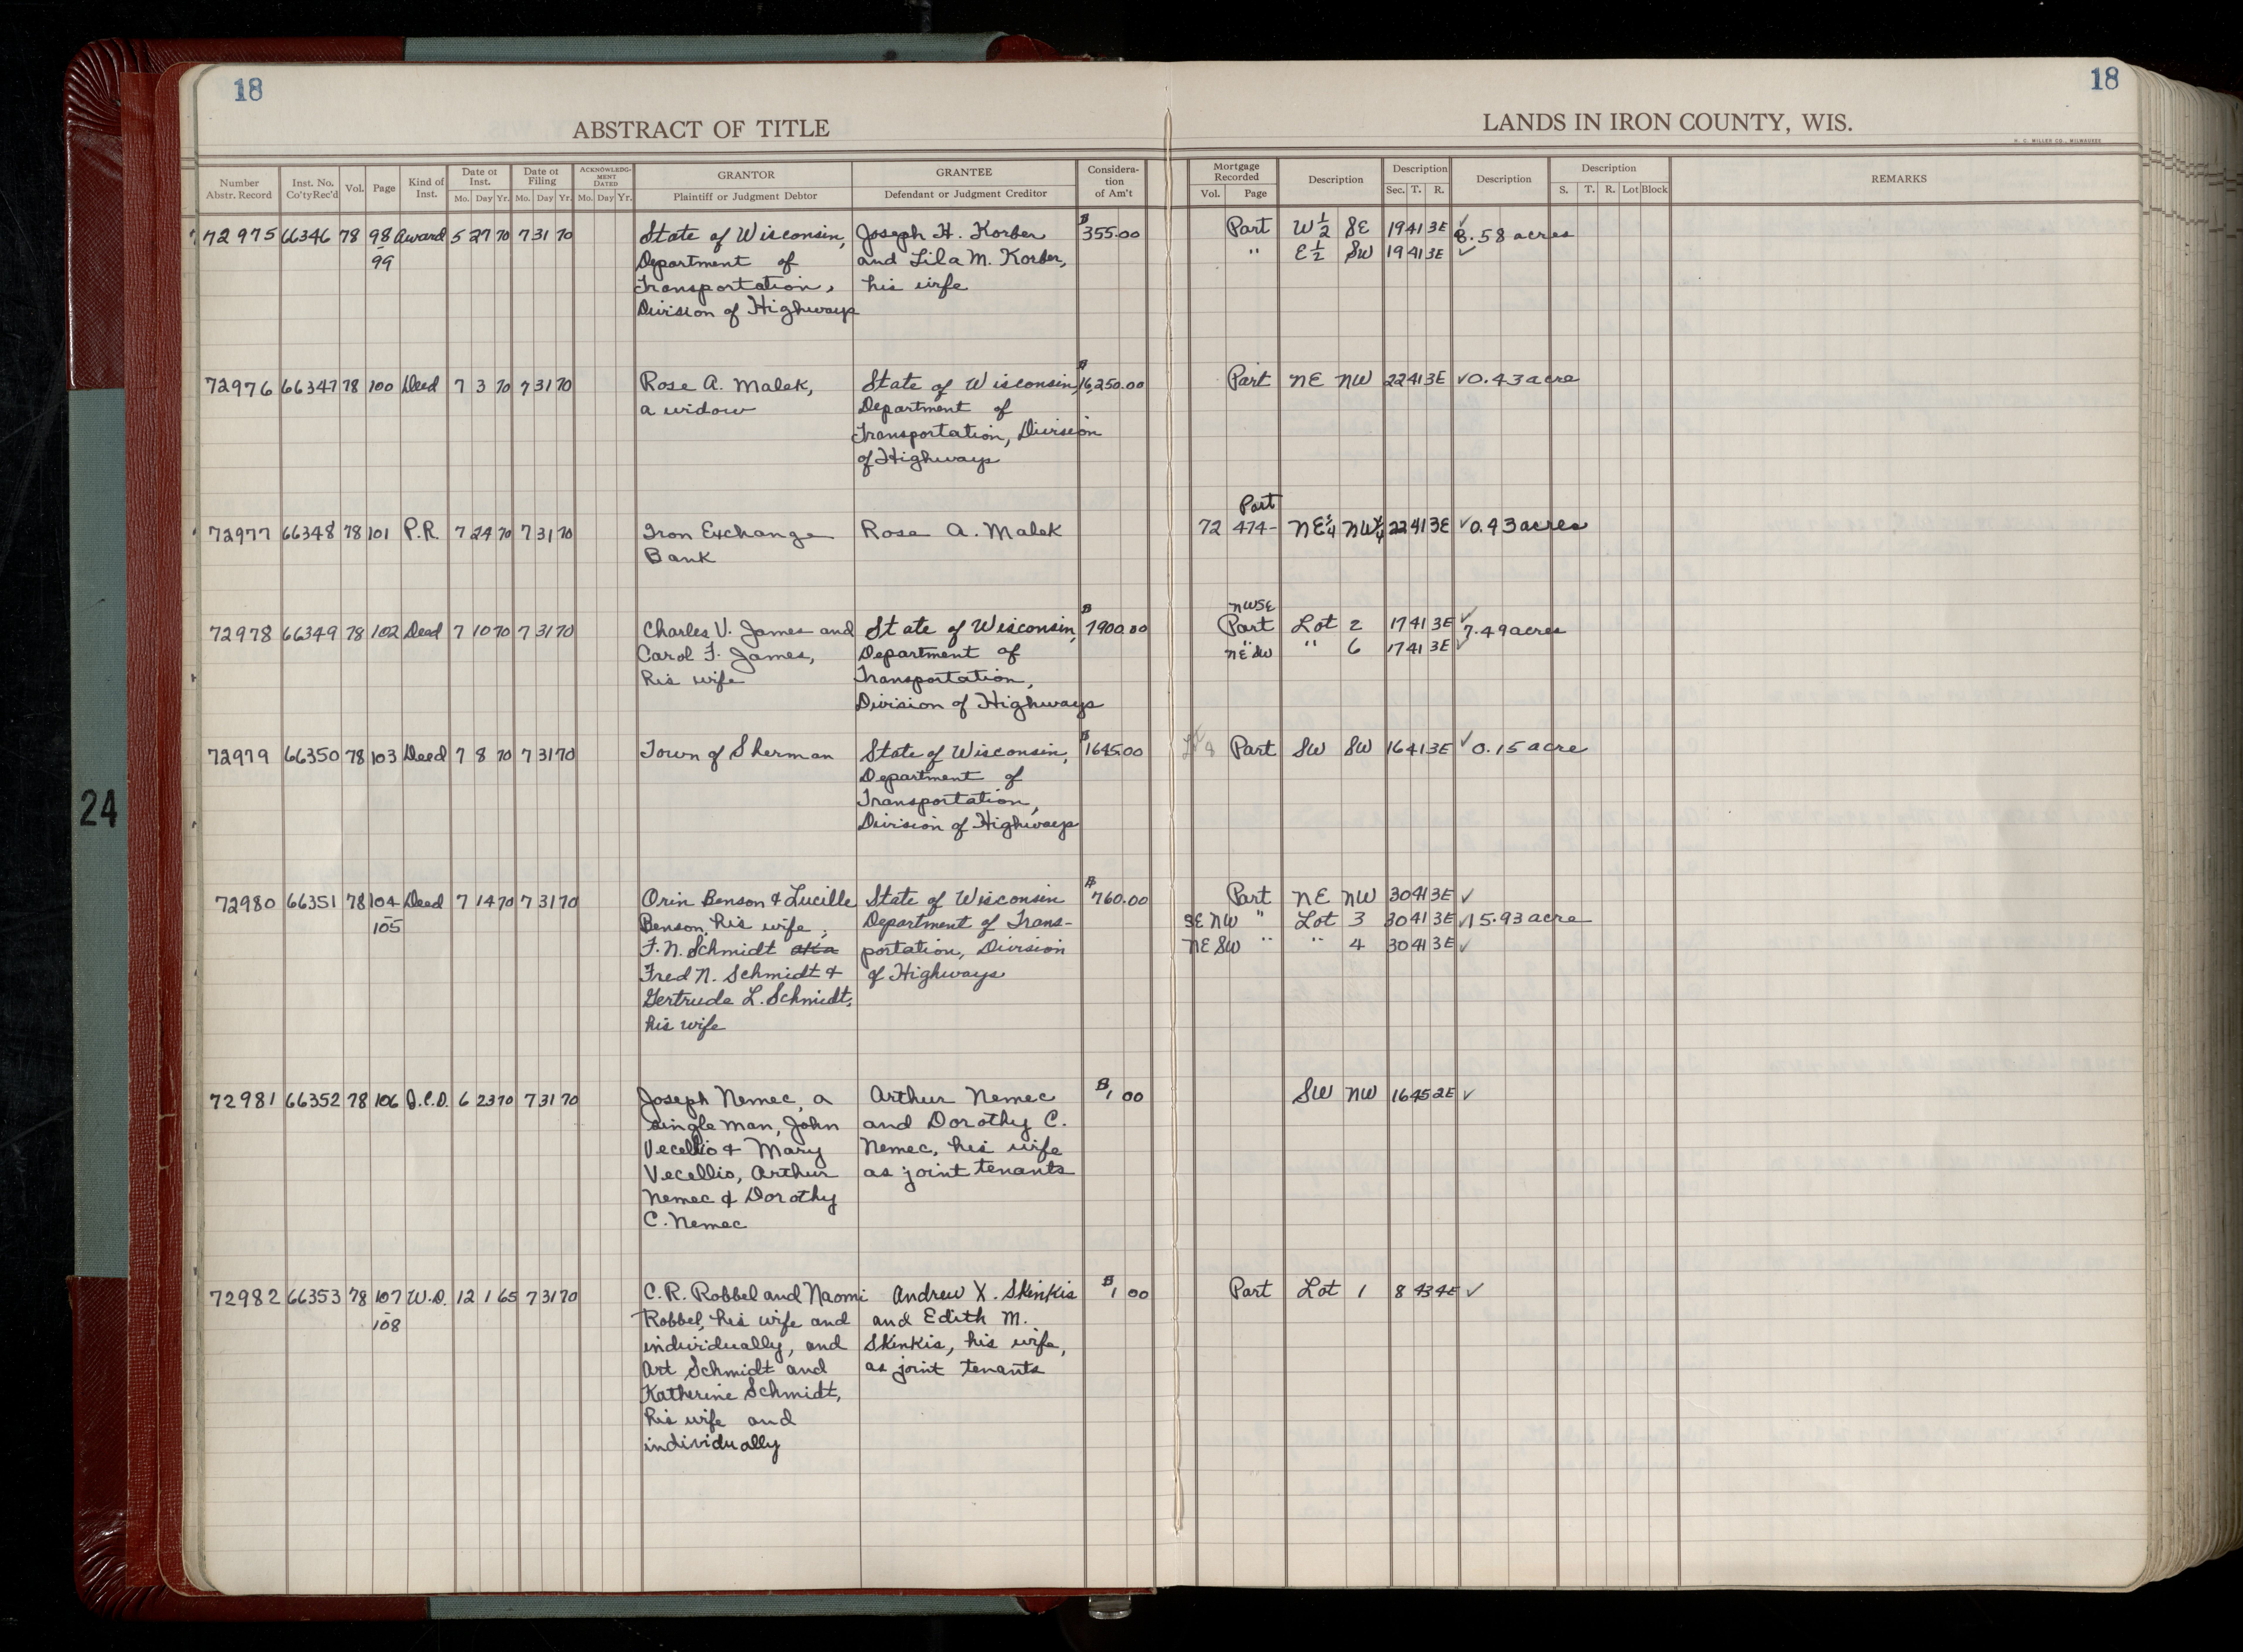 18
18
ABSTRACT OF TITLE
LANDS IN IRON COUNTY, WIS.
H. C. MILLER CO., MILWAUKEE
Number Abstr. Record Inst. No. Co'ty Rec'd Vol. Page Kind of Inst. Date of Inst. Mo. Day Yr. Date of Filing Mo. Day Yr. ACKNOWLEDGMENT DATED Mo. Day Yr. GRANTOR Plaintiff or Judgment Debtor GRANTEE Defendant or Judgment Creditor Consideration of Am't Mortgage Recorded Vol. Page Description Description Sec. T. R. Description Description S. T. R. Lot Block REMARKS
72975 66346 78 98 Award 5 27 70 7 31 70 State of Wisconsin, Joseph H. Korber $355.00 Part W½ SE 19 41 3E ✓ 8.58 acres
99 Department of and Lila M. Korber, " E½ SW 19 41 3E ✓
Transportation, his wife
Division of Highways
72976 66347 78 100 Deed 7 3 70 7 31 70 Rose A. Malek, State of Wisconsin, $16,250.00 Part NE NW 22 41 3E ✓ 0.43 acre
a widow Department of
Transportation, Division
of Highways
Part
72977 66348 78 101 P.R. 7 24 70 7 31 70 Iron Exchange Rose A. Malek 72 474- NE¼ NW¼ 22 41 3E ✓ 0.93 acres
Bank
NWSE
72978 66349 78 102 Deed 7 10 70 7 31 70 Charles V. James and State of Wisconsin, $1900.00 Part Lot 2 17 41 3E ✓ 7.49 acres
Carol F. James, Department of NE SW " " 6 17 41 3E ✓
his wife Transportation,
Division of Highways
72979 66350 78 103 Deed 7 8 70 7 31 70 Town of Sherman State of Wisconsin, $1645.00 Part SW SW 16 41 3E ✓ 0.15 acre
Department of
Transportation,
Division of Highways
24
72980 66351 78 104 Deed 7 14 70 7 31 70 Orin Benson & Lucille State of Wisconsin $760.00 Part NE NW 30 41 3E ✓
- 105 Benson, his wife; Department of Trans- SE NW " Lot 3 30 41 3E ✓ 15.93 acre
F. N. Schmidt aka portation, Division NE SW " " 4 30 41 3E ✓
Fred N. Schmidt & of Highways
Gertrude L. Schmidt,
his wife
72981 66352 78 106 Q.C.D. 6 23 70 7 31 70 Joseph Nemec, a Arthur Nemec $1.00 SW NW 16 45 2E ✓
single man, John and Dorothy C.
Vecellio & Mary Nemec, his wife
Vecellio, Arthur as joint tenants
Nemec & Dorothy
C. Nemec
72982 66353 78 107 W.D. 12 1 65 7 31 70 C. R. Robbel and Naomi Andrew X. Skinkis $1.00 Part Lot 1 8 43 4E ✓
- 108 Robbel, his wife and and Edith M.
individually, and Skinkis, his wife,
Art Schmidt and as joint tenants
Katherine Schmidt,
his wife and
individually